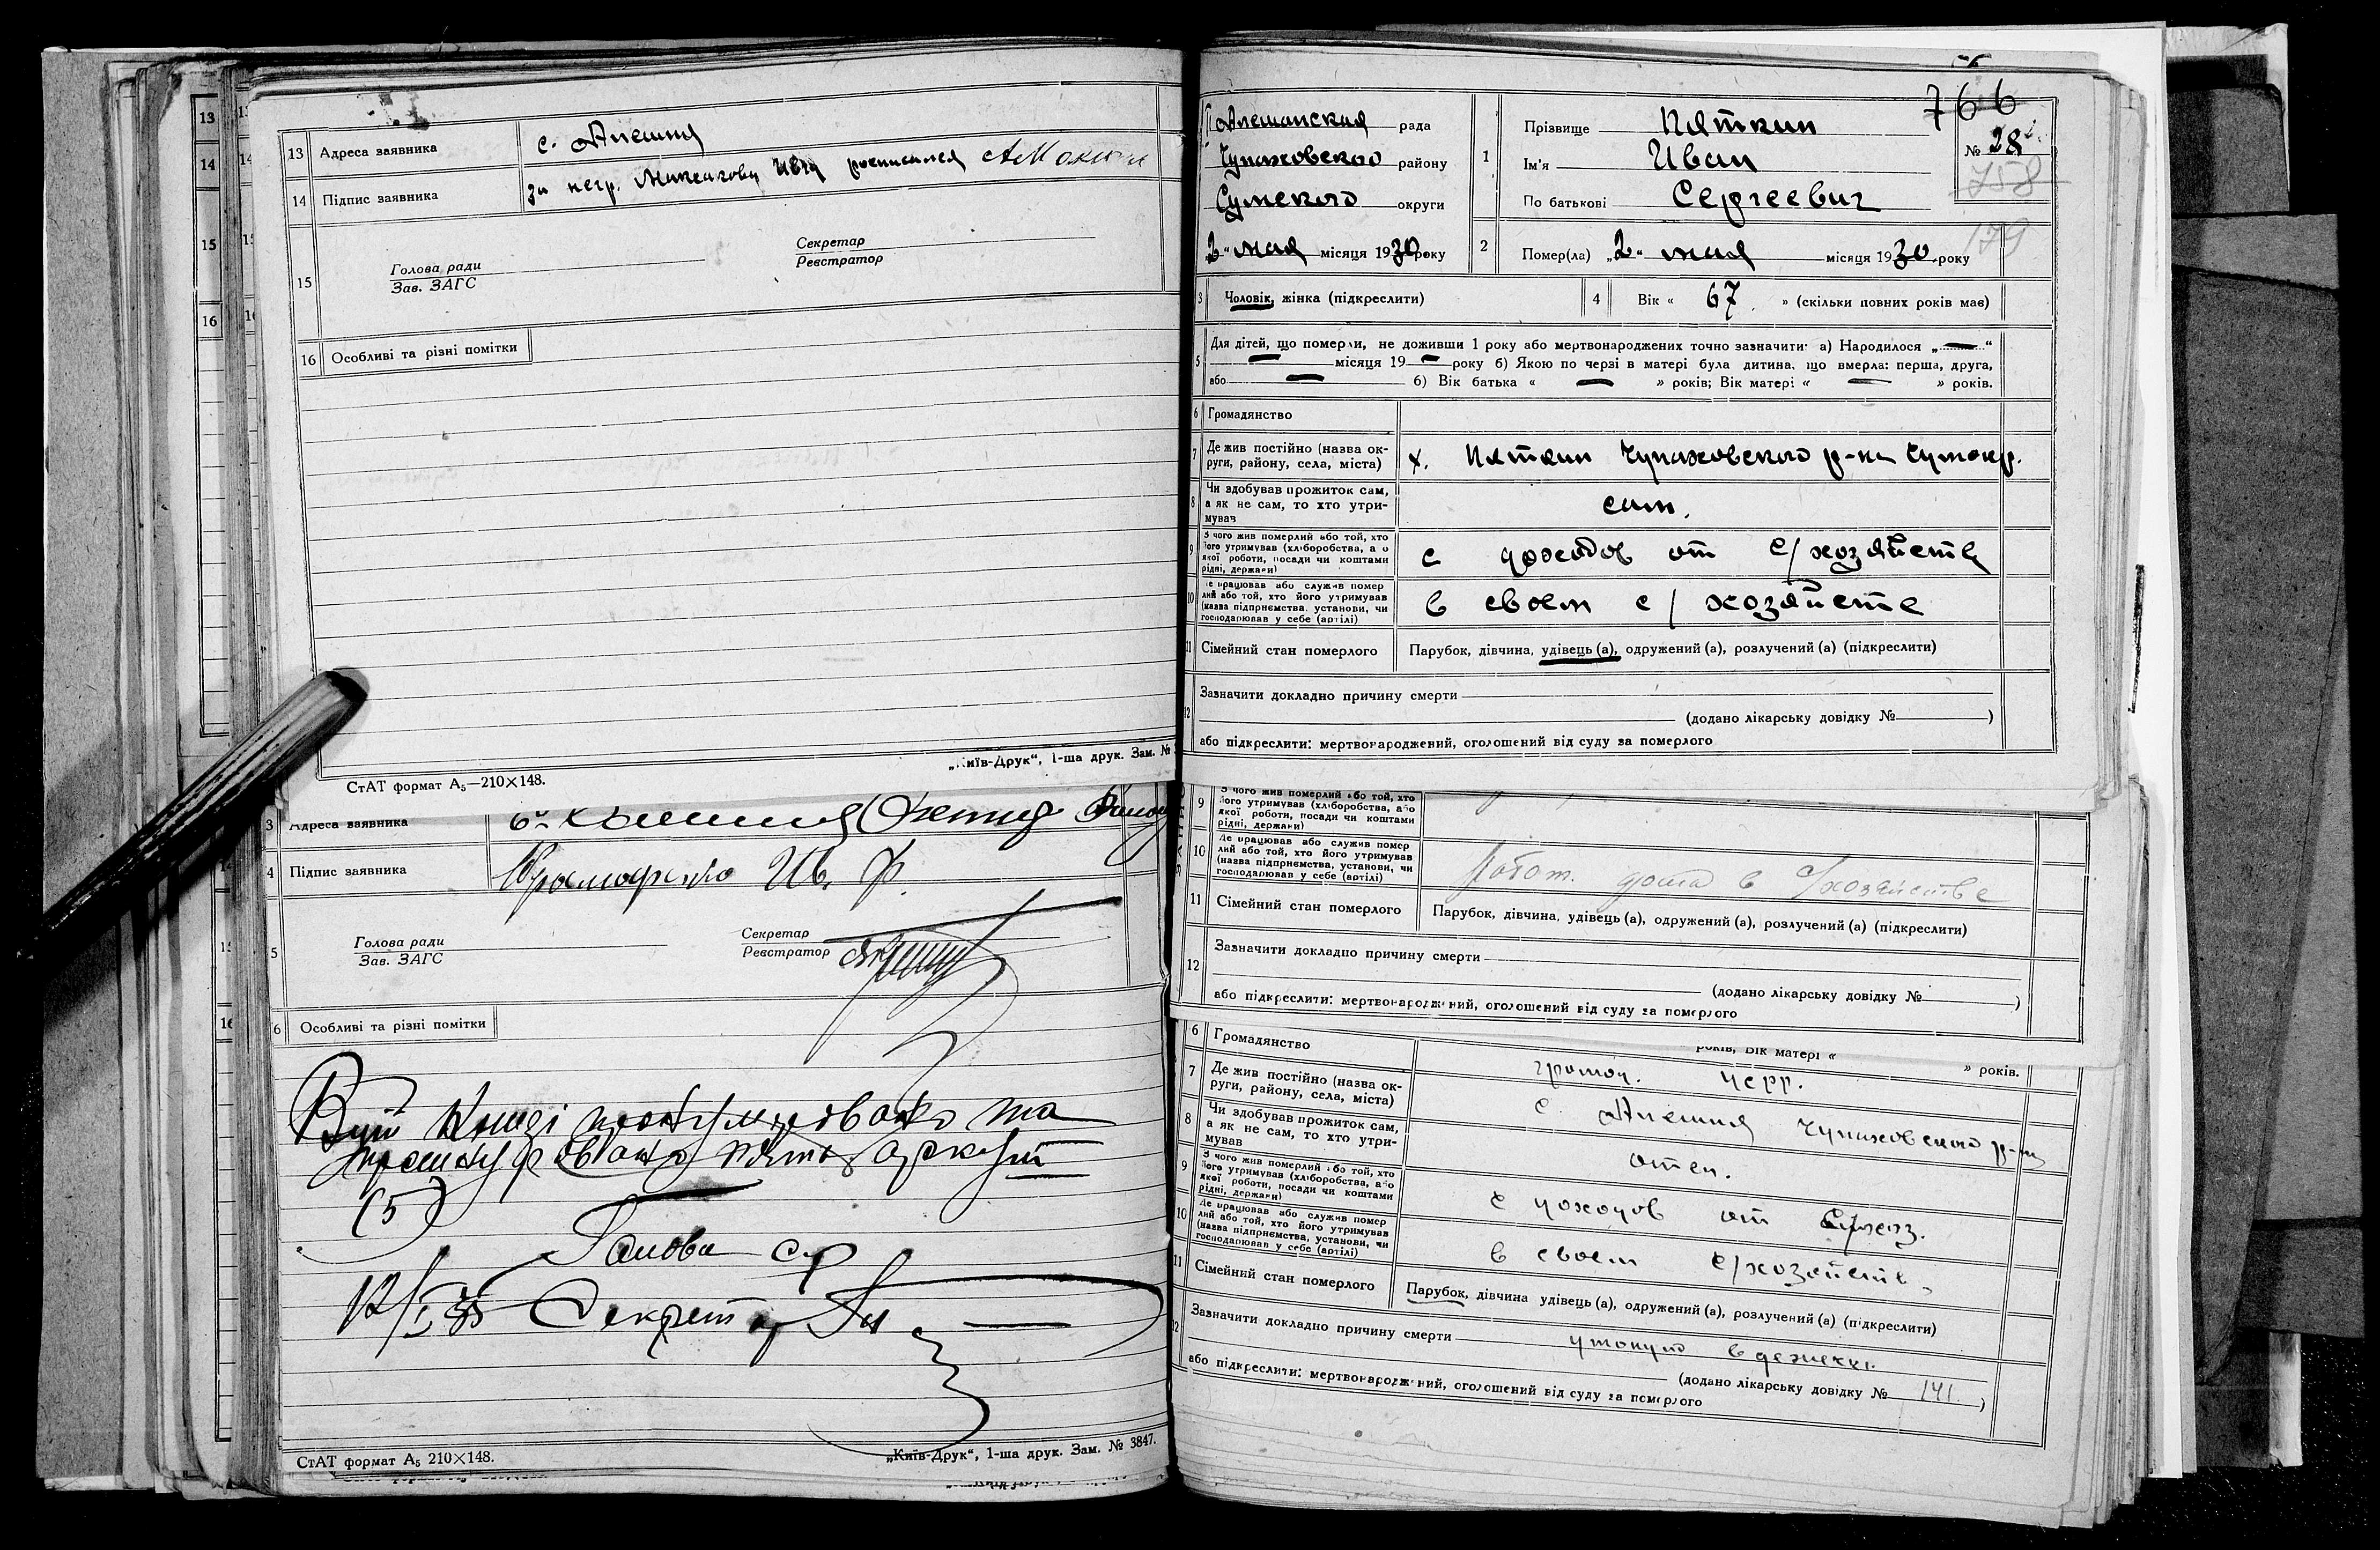 13 Адреса заявника с. Алешня
14 Підпис заявника за негр. росписался
15
Голова ради
Зав. ЗАГС
Секретар
Реєстратор
16 Особливі та різні помітки
СтАТ формат А₅—210×148.
„Київ-Друк“, 1-ша друк. Зам. №
3 Адреса заявника
4 Підпис заявника Ив. Ф.
5
Голова ради
Зав. ЗАГС
Секретар
Реєстратор
6 Особливі та різні помітки
В цій книзі пронумеровано та
прошнуровано пять аркуш
(5)
Голова с/р
Секретар
СтАТ формат А₅ 210×148.
„Київ-Друк“, 1-ша друк. Зам. № 3847.
766
Алешанская рада
Чупаховского району
Сумского округи
„2“ мая місяця 1930 року
1
Прізвище Пяткин
Ім'я Иван
По батькові Сергеевич
№ 28
758
179
2 Помер(ла) „2“ мая місяця 1930 року
3 Чоловік, жінка (підкреслити)
4 Вік « 67 » (скільки повних років має)
5 Для дітей, що померли, не доживши 1 року або мертвонароджених точно зазначити: а) Народилося „—“
— місяця 19 — року б) Якою по черзі в матері була дитина, що вмерла: перша, друга,
або — б) Вік батька « — » років; Вік матері « — » років.
6 Громадянство
7 Де жив постійно (назва округи, району, села, міста) х. Пяткин Чупаховского р-на Сумокр.
8 Чи здобував прожиток сам, а як не сам, то хто утримував сам.
9 З чого жив померлий або той, хто його утримував (хліборобства, або якої роботи, посади чи коштами рідні, держави) с доходов от с/хозяйств
10 Де працював або служив померлий або той, хто його утримував (назва підприємства, установи, чи господарював у себе (артілі) в своем с/хозяйстве
11 Сімейний стан померлого Парубок, дівчина, удівець (а), одружений (а), розлучений (а) (підкреслити)
12 Зазначити докладно причину смерти
(додано лікарську довідку № )
або підкреслити: мертвонароджений, оголошений від суду за померлого
9 З чого жив померлий або той, хто його утримував (хліборобства, або якої роботи, посади чи коштами рідні, держави)
10 Де працював або служив померлий або той, хто його утримував (назва підприємства, установи, чи господарював у себе (артілі) Работ. дома в с/хозяйстве
11 Сімейний стан померлого Парубок, дівчина, удівець (а), одружений (а), розлучений (а) (підкреслити)
12 Зазначити докладно причину смерти
(додано лікарську довідку № )
або підкреслити: мертвонароджений, оголошений від суду за померлого
років, Вік матері « » років.
6 Громадянство
7 Де жив постійно (назва округи, району, села, міста) с. Алешня Чупаховского р-на
8 Чи здобував прожиток сам, а як не сам, то хто утримував отец.
9 З чого жив померлий або той, хто його утримував (хліборобства, або якої роботи, посади чи коштами рідні, держави) с доходов от с/хоз.
10 Де працював або служив померлий або той, хто його утримував (назва підприємства, установи, чи господарював у себе (артілі) в своем с/хозяйств
11 Сімейний стан померлого Парубок, дівчина удівець (а), одружений (а), розлучений (а) (підкреслити)
12 Зазначити докладно причину смерти утонул в
(додано лікарську довідку № 141 )
або підкреслити: мертвонароджений, оголошений від суду за померлого